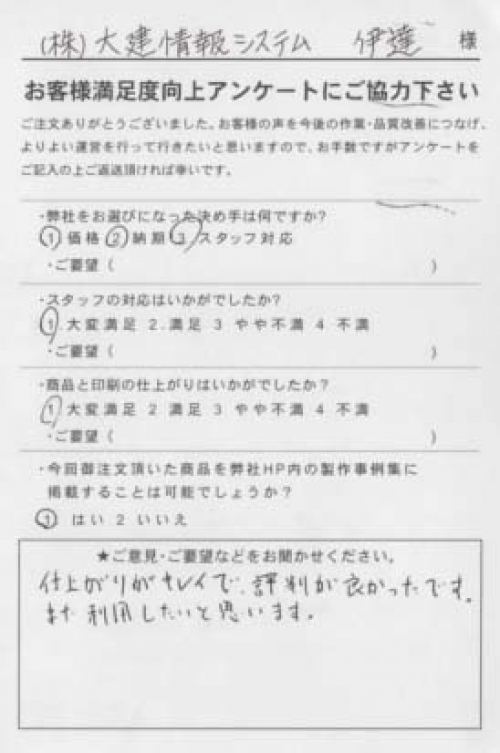 (株)大建情報システム 伊達 様
お客様満足度向上アンケートにご協力下さい
ご注文ありがとうございました。お客様の声を今後の作業・品質改善につなげ、
よりよい運営を行って行きたいと思いますので、お手数ですがアンケートを
ご記入の上ご返送頂ければ幸いです。
・弊社をお選びになった決め手は何ですか?
1 価格 2 納期 3 スタッフ対応
・ご要望( )
・スタッフの対応はいかがでしたか?
1.大変満足 2.満足 3 やや不満 4 不満
・ご要望( )
・商品と印刷の仕上がりはいかがでしたか?
1 大変満足 2 満足 3 やや不満 4 不満
・ご要望( )
・今回御注文頂いた商品を弊社HP内の製作事例集に
掲載することは可能でしょうか?
1 はい 2 いいえ
★ご意見・ご要望などをお聞かせください。
仕上がりがキレイで、評判が良かったです。
また利用したいと思います。